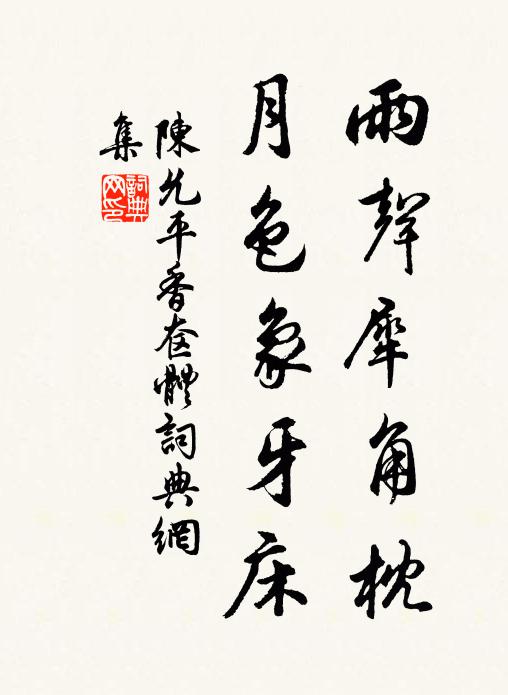 雨聲犀角枕
月色象牙床
陳允平香奩體詞典網
集
詞典
网印